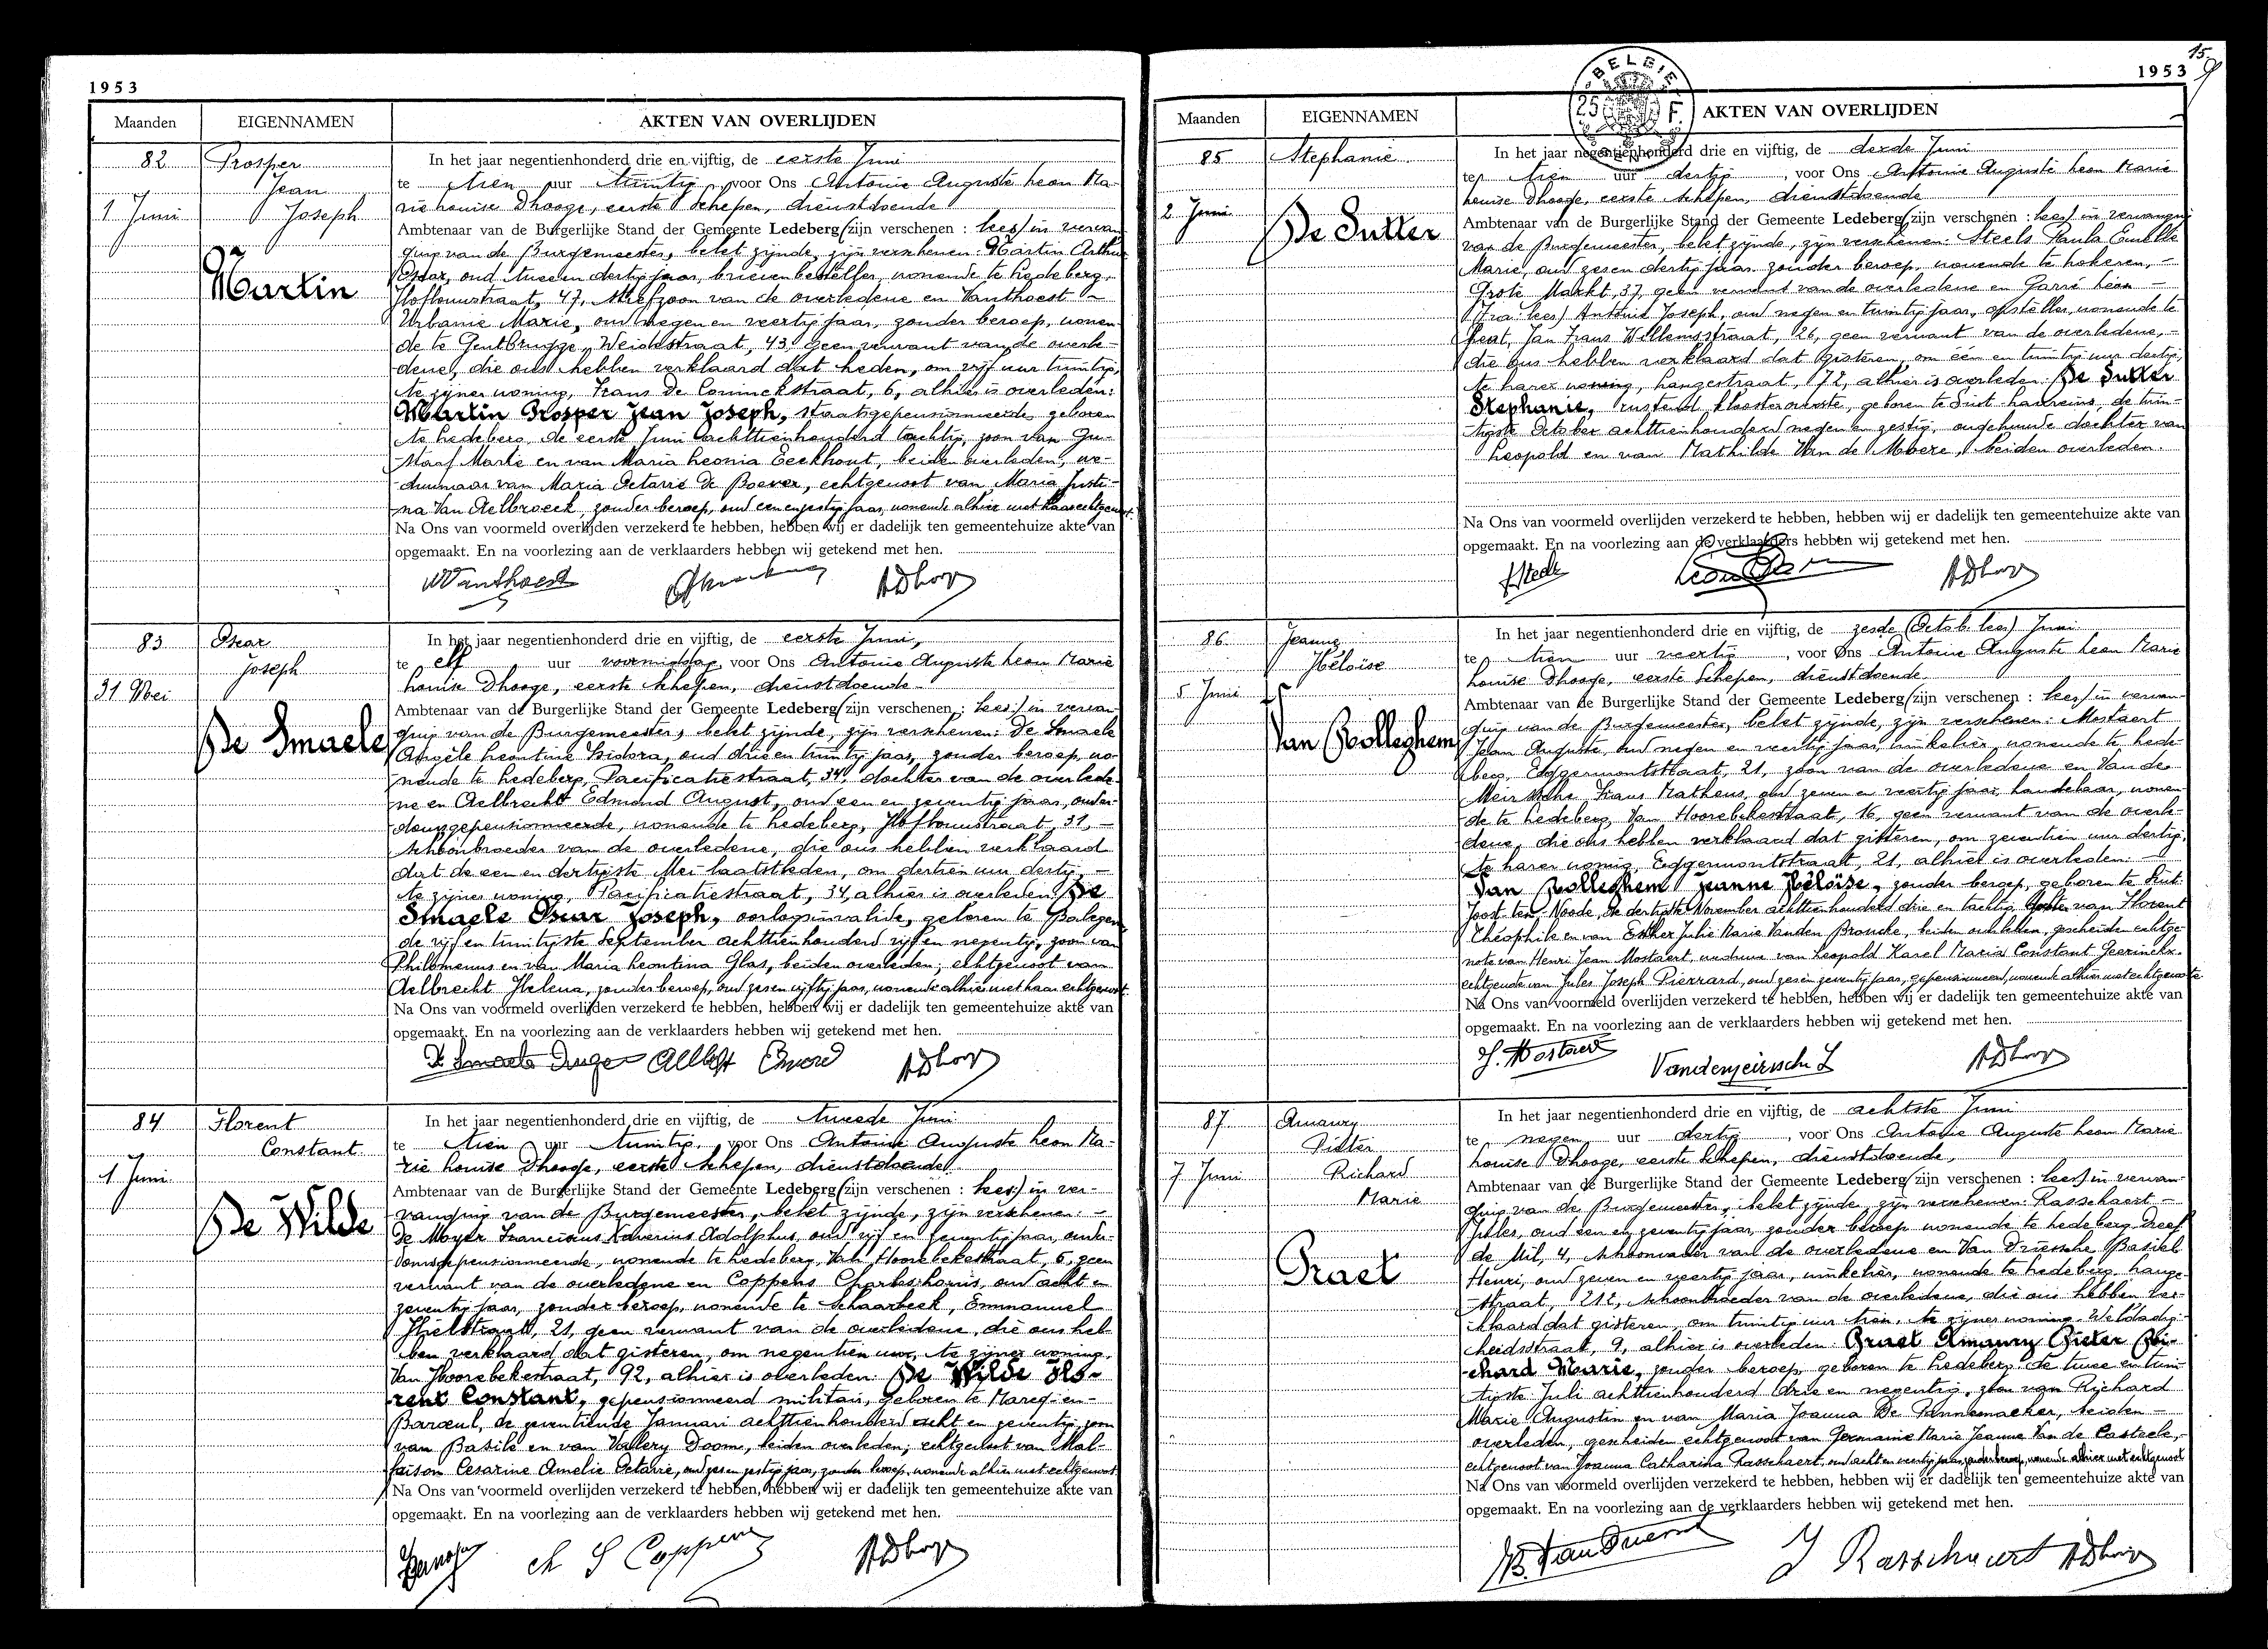 1953
Maanden EIGENNAMEN AKTEN VAN OVERLIJDEN
82
1 Juni
Prosper
Jean
Joseph
Martin
In het jaar negentienhonderd drie en vijftig, de eerste Juni
te tien uur twintig, voor Ons Antoine Auguste Leon Ma-
rie Louise Dhooge, eerste schepen, dienstdoende
Ambtenaar van de Burgerlijke Stand der Gemeente Ledeberg (zijn verschenen : lees) in vervan-
ging van de Burgemeester, belet zijnde, zijn verschenen: Martin Arthur
Oscar, oud twee en dertig jaar, brievenbesteller, wonende te Ledeberg,
Hoflouwstraat, 47, neefzoon van de overledene en Vanthoest -
Urbanie Marie, oud negen en veertig jaar, zonder beroep, wonen-
de te Gentbrugge, Weidestraat, 43, geen verwant van de overle-
dene, die ons hebben verklaard dat heden, om vijf uur twintig,
te zijner woning, Frans De Coninckstraat, 6, alhier is overleden:
Martin Prosper Jean Joseph, staatsgepensionneerde, geboren
te Ledeberg de eerste Juni achttienhonderd tachtig, zoon van Gu-
staaf Marie en van Maria Leonia Eeckhout, beiden overleden, we-
duwnaar van Maria Octavie De Boever, echtgenoot van Maria Justi-
na Van Aelbroeck, zonder beroep, oud een en zestig jaar, wonende alhier met haar echtgenoot.
Na Ons van voormeld overlijden verzekerd te hebben, hebben wij er dadelijk ten gemeentehuize akte van
opgemaakt. En na voorlezing aan de verklaarders hebben wij getekend met hen.
Vanthoest ADhooge
83
31 Mei
Oscar
Joseph
De Smaele
In het jaar negentienhonderd drie en vijftig, de eerste Juni,
te elf uur voormiddag, voor Ons Antoine Auguste Leon Marie
Louise Dhooge, eerste schepen, dienstdoende
Ambtenaar van de Burgerlijke Stand der Gemeente Ledeberg (zijn verschenen : lees) in vervan-
ging van de Burgemeester, belet zijnde, zijn verschenen: De Smaele
Angèle Leontine Isidora, oud drie en twintig jaar, zonder beroep, wo-
nende te Ledeberg, Pacificatiestraat, 34, dochter van de overlede-
ne en Aelbrecht Edmond August, oud een en zeventig jaar, ouder-
domsgepensionneerde, wonende te Ledeberg, Hoflouwstraat, 31, -
schoonbroeder van de overledene, die ons hebben verklaard
dat de een en dertigste Mei laatstleden, om dertien uur dertig, -
te zijner woning, Pacificatiestraat, 34, alhier is overleden: De
Smaele Oscar Joseph, oorlogsinvalide, geboren te Balegem
de vijf en twintigste September achttienhonderd vijf en negentig, zoon van
Philomenus en van Maria Leontina Glas, beiden overleden; echtgenoot van
Aelbrecht Helena, zonder beroep, oud zes en vijftig jaar, wonende alhier met haar echtgenoot.
Na Ons van voormeld overlijden verzekerd te hebben, hebben wij er dadelijk ten gemeentehuize akte van
opgemaakt. En na voorlezing aan de verklaarders hebben wij getekend met hen.
De Smaele Angèle ADhooge
84
1 Juni
Florent
Constant
De Wilde
In het jaar negentienhonderd drie en vijftig, de tweede Juni
te tien uur twintig, voor Ons Antoine Auguste Leon Ma-
rie Louise Dhooge, eerste schepen, dienstdoende
Ambtenaar van de Burgerlijke Stand der Gemeente Ledeberg (zijn verschenen : lees) in ver-
vanging van de Burgemeester, belet zijnde, zijn verschenen: -
De Moyer Franciscus Xaverius Adolphus, oud vijf en zeventig jaar, ouder-
domsgepensionneerde, wonende te Ledeberg, Van Hoorebekestraat, 6, geen
verwant van de overledene en Coppens Charles Louis, oud acht en
zeventig jaar, zonder beroep, wonende te Schaarbeek, Emmanuel
Hielstraat, 21, geen verwant van de overledene, die ons heb-
ben verklaard dat gisteren, om negentien uur, te zijner woning,
Van Hoorebekestraat, 92, alhier is overleden: De Wilde Flo-
rent Constant, gepensionneerd militair, geboren te Marcq-en-
Baroeul, de zeventiende Januari achttienhonderd acht en zeventig, zoon
van Basile en van Vallery Doom, beiden overleden; echtgenoot van Mal-
faison Cesarine Amelie Octavie, oud zes en zestig jaar, zonder beroep, wonende alhier met echtgenoot.
Na Ons van voormeld overlijden verzekerd te hebben, hebben wij er dadelijk ten gemeentehuize akte van
opgemaakt. En na voorlezing aan de verklaarders hebben wij getekend met hen.
Coppens ADhooge
15
1953
BELGIE
25 F.
Maanden EIGENNAMEN AKTEN VAN OVERLIJDEN
85
2 Juni
Stephanie
De Sutter
In het jaar negentienhonderd drie en vijftig, de derde Juni
te tien uur dertig, voor Ons Antoine Auguste Leon Marie
Louise Dhooge, eerste schepen, dienstdoende
Ambtenaar van de Burgerlijke Stand der Gemeente Ledeberg (zijn verschenen : lees) in vervanging
van de Burgemeester, belet zijnde, zijn verschenen: Steels Paula Emelie
Marie, oud zes en dertig jaar, zonder beroep, wonende te Lokeren, -
Grote Markt, 37, geen verwant van de overledene en Garré Leon -
(Fra: lees) Antoine Joseph, oud negen en twintig jaar, opsteller, wonende te
Gent, Jan Frans Willemsstraat, 26, geen verwant van de overledene, -
die ons hebben verklaard dat gisteren, om één en twintig uur dertig,
te harer woning, Langestraat, 172, alhier is overleden: De Sutter
Stephanie, rustend kloosteroverste, geboren te Sint-Laureins de twin-
tigste October achttienhonderd negen en zestig, ongehuwde dochter van
Leopold en van Mathilde Van de Moere, beiden overleden.
Na Ons van voormeld overlijden verzekerd te hebben, hebben wij er dadelijk ten gemeentehuize akte van
opgemaakt. En na voorlezing aan de verklaarders hebben wij getekend met hen.
ADhooge
86
5 Juni
Jeanne
Héloïse
Van Bolleghem
In het jaar negentienhonderd drie en vijftig, de zesde (Octob. lees) Juni
te tien uur veertig, voor Ons Antoine Auguste Leon Marie
Louise Dhooge, eerste Schepen, dienstdoende
Ambtenaar van de Burgerlijke Stand der Gemeente Ledeberg (zijn verschenen : lees) in vervan-
ging van de Burgemeester, belet zijnde, zijn verschenen: Mostaert
Jean Auguste, oud negen en veertig jaar, winkelier, wonende te Lede-
berg, Eggermontstraat, 21, zoon van de overledene en Van der
Meirssche Frans Matheus, oud zeven en veertig jaar, handelaar, wonen-
de te Ledeberg, Van Hoorebekestraat, 16, geen verwant van de overle-
dene, die ons hebben verklaard dat gisteren, om zeventien uur dertig,
te harer woning, Eggermontstraat, 21, alhier is overleden: -
Van Bolleghem Jeanne Héloïse, zonder beroep, geboren te Sint-
Joost-ten-Noode, de dertigste November achttienhonderd drie en tachtig, dochter van Florent
Théophile en van Esther Julie Marie Vanden Broucke, beiden overleden, gescheiden echtge-
note van Henri Jean Mostaert, weduwe van Leopold Karel Maria Constant Geerinckx,
echtgenote van Jules Joseph Pierrard, oud zes en zeventig jaar, gepensioneerd, wonende alhier met echtgenote
Na Ons van voormeld overlijden verzekerd te hebben, hebben wij er dadelijk ten gemeentehuize akte van
opgemaakt. En na voorlezing aan de verklaarders hebben wij getekend met hen.
J. Mostaert ADhooge
87
7 Juni
Amaury
Pieter
Richard
Marie
Praet
In het jaar negentienhonderd drie en vijftig, de achtste Juni
te negen uur dertig, voor Ons Antoine Auguste Leon Marie
Louise Dhooge, eerste Schepen, dienstdoende,
Ambtenaar van de Burgerlijke Stand der Gemeente Ledeberg (zijn verschenen : lees) in vervan-
ging van de Burgemeester, belet zijnde, zijn verschenen: Rasschaert -
Jules, oud een en zeventig jaar, zonder beroep, wonende te Ledeberg, Dreef
de Mil, 4, schoonvader van de overledene en Van Driessche Basiel
Henri, oud zeven en veertig jaar, winkelier, wonende te Ledeberg, Lange-
straat, 212, schoonbroeder van de overledene, die ons hebben ver-
klaard dat gisteren, om twintig uur tien, te zijner woning, Weldadig-
heidsstraat, 9, alhier is overleden: Praet Amaury Pieter Ri-
chard Marie, zonder beroep, geboren te Ledeberg de twee en twin-
tigste Juli achttienhonderd drie en negentig, zoon van Richard
Marie Augustin en van Maria Joanna De Pannemaeker, beiden -
overleden, gescheiden echtgenoot van Germaine Marie Jeanne Van de Casteele,
echtgenoot van Joanna Catharina Rasschaert, oud acht en veertig jaar, zonder beroep, wonende alhier met echtgenoot
Na Ons van voormeld overlijden verzekerd te hebben, hebben wij er dadelijk ten gemeentehuize akte van
opgemaakt. En na voorlezing aan de verklaarders hebben wij getekend met hen.
J Rasschaert ADhooge